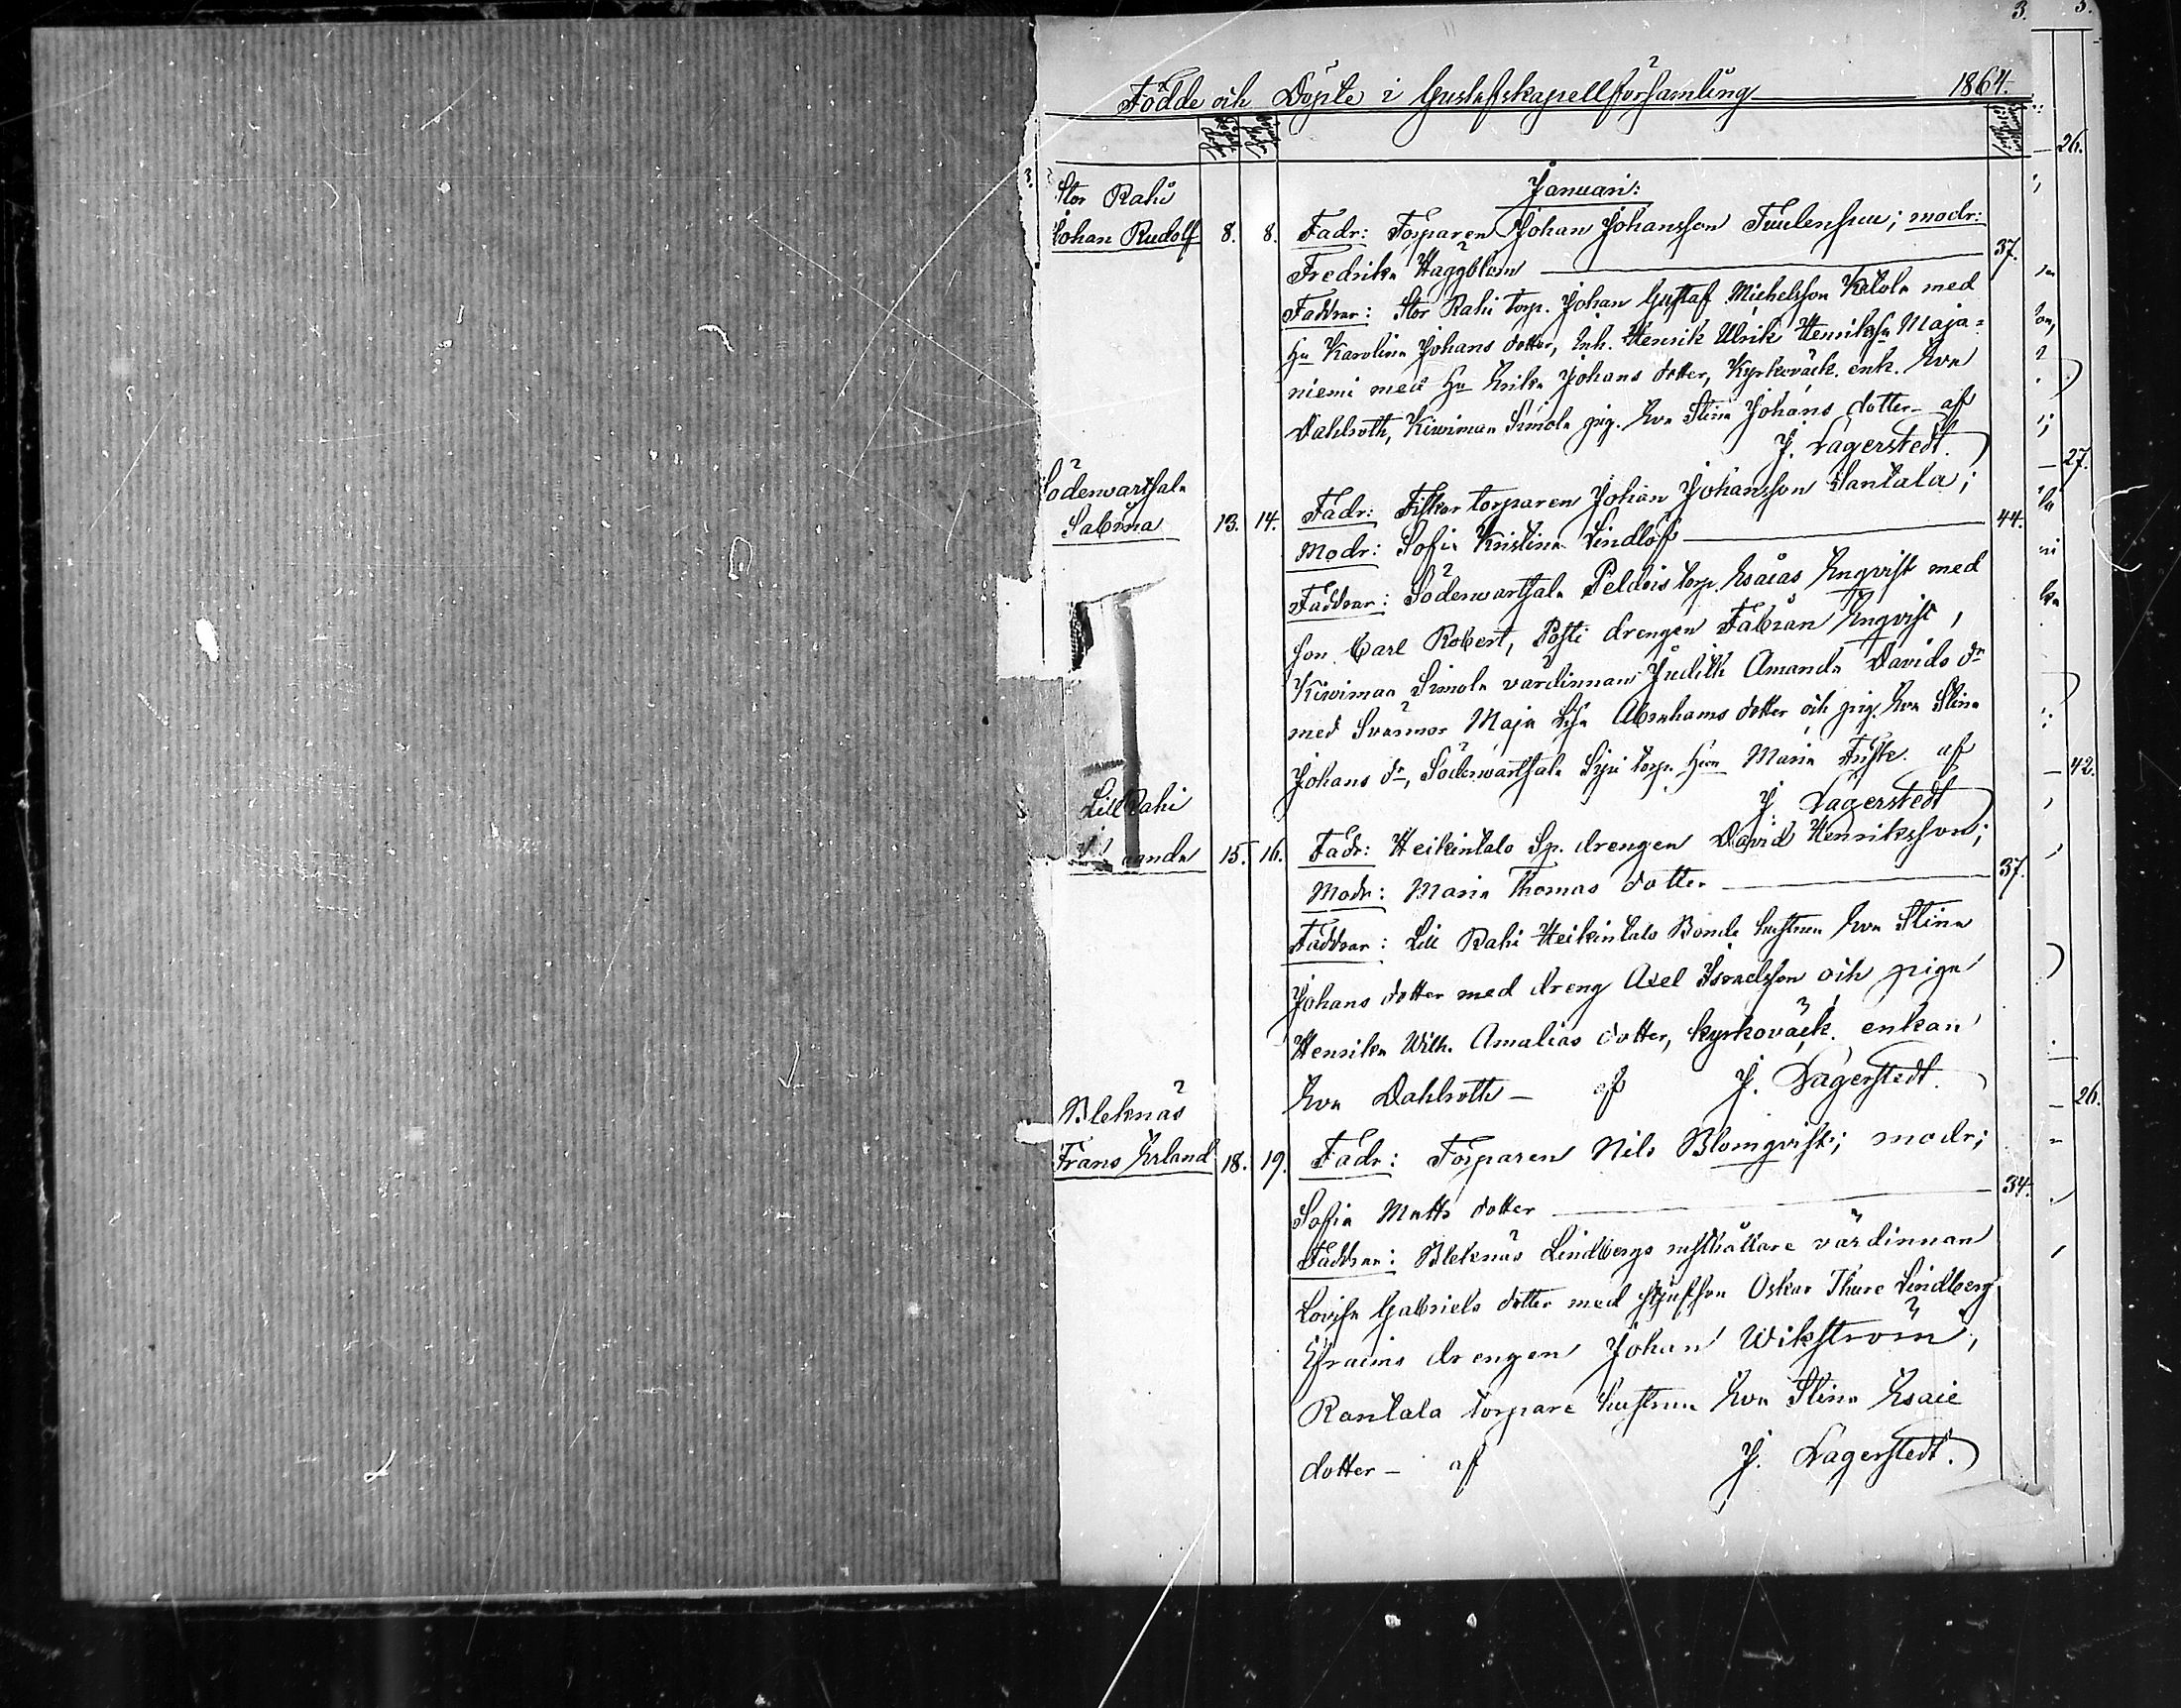 3.
Födde och Döpte i Gustafskapellförsamling 1864.
Januari:
Stor Rahi
Johan Rudolf 8. 8. Fadr: Torparen Johan Johansson Tuulensuu; modr:
Fredrika Häggblom 37.
Faddrar: Stor Rahi torp. Johan Gustaf Michelsson Kalola med
Hu Karolina Johans dotter, Inh. Henrik Ulrik Henrikss Maja=
niemi med Hu Erika Johans dotter, Kyrkoväck. enk. Eva
Dahlroth, Kiwimaa Simola pig. Eva Stina Johans dotter af
J. Lagerstedt.
Södervartsala
Sabina 13. 14. Fadr: Fiskar torparen Johan Johansson Santala;
Modr: Sofia Kristina Lindlöf 44.
Faddrar: Södervartsala Peldois torp. Esaias Engvist med
son Carl Robert, Posti drengen Fabian Engvist,
Kiwimaa Simola värdinnan Judith Amanda Davids dr
med Svärmor Maja Lisa Abrahams dotter och pig. Eva Stina
Johans dr, Södervartsala torp. Hun Maria Fisk. af
J. Lagerstedt
Lill Rahi
anda 15. 16. Fadr: Heikintalo Sp. drengen David Henriksson;
Modr: Maria Thomas dotter 37.
Faddrar: Lill Rahi Heikintalo Bonde hustrun Eva Stina
Johans dotter med dreng Axel Israelsson och piga
Henrika Wilh. Amalias dotter, Kyrkoväck. enkan
Eva Dahlroth — af J. Lagerstedt.
Bleknäs
Frans Erland 18. 19. Fadr: Torparen Nils Blomqvist; modr;
Sofia Matts dotter 34.
Faddrar: Bleknäs Lindbergs rusthållare värdinnan
Lovisa Gabriels dotter med Oskar Thure Lindberg
Efraims drengen Johan Wikström,
Rantala torpare hustrun Eva Stina Esaie
dotter — af J. Lagerstedt.
26.
27.
42.
26.